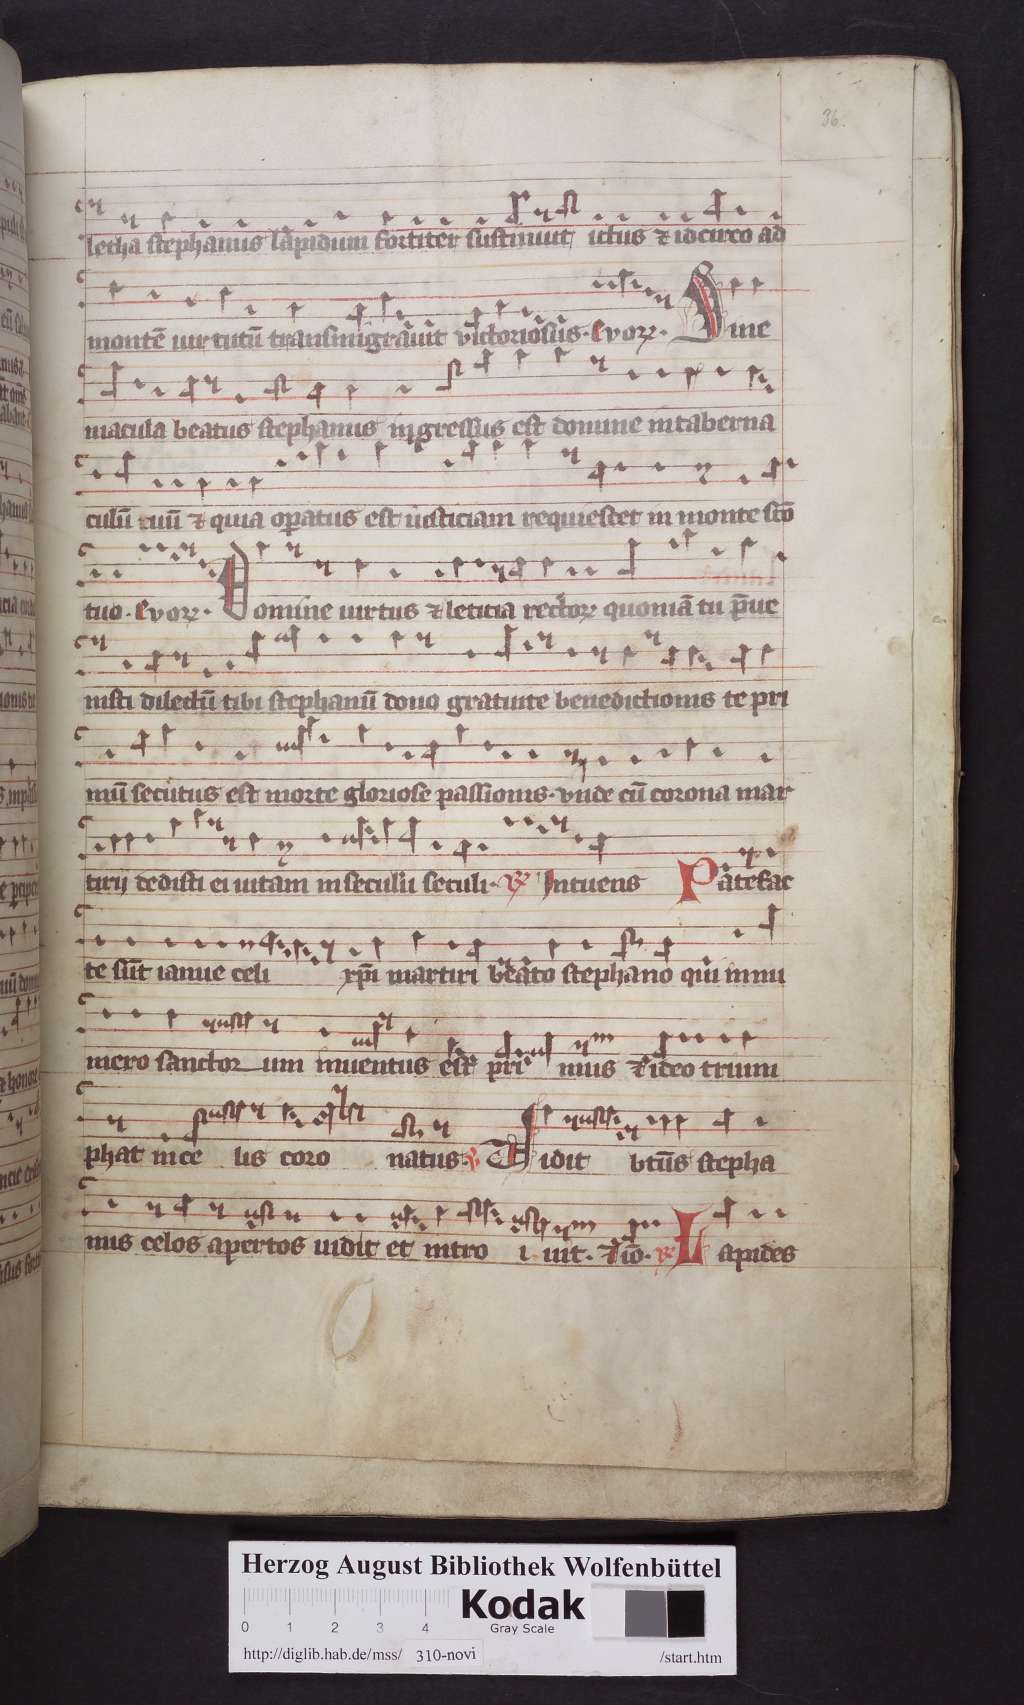 36.
letha stephanus lapidum fortiter sustinuit ictus ⁊ idcirco ad
montē uirtutū transmigrauit uictoriosus. Euoꝝ. Sine
macula beatus stephanus ingressus est domine in taberna
culū tuū ⁊ quia opatus est iusticiam requiescet in monte scō
tuo. Euoꝝ. Domine uirtus ⁊ leticia rectoꝝ quoniā tu p̄ue
nisti dilectū tibi stephanū dono gratuite benedictionis te pri
mū secutus est morte gloriose passionis. vnde cū corona mar
tirij dedisti ei uitam in seculū seculi. ℟ Intuens Patefac
te sūt ianue celi xp̄i martiri beato stephano qui in nu
mero sanctor um inuentus est pri mus ⁊ ideo trium
phat in ce lis coro natus. ℣ Uidit btūs stepha
nus celos apertos uidit et intro i uit. ⁊ iō. ℟ Lapides
Herzog August Bibliothek Wolfenbüttel
0 1 2 3 4
Kodak
Gray Scale
http://diglib.hab.de/mss/ 310-novi /start.htm